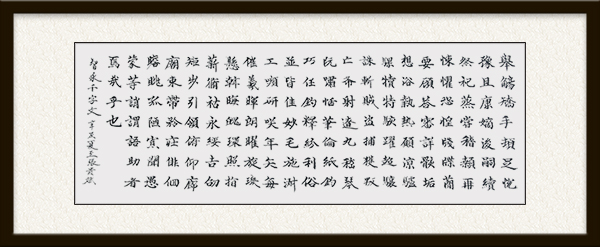 舉觴矯手頓足悅
豫且康嫡後嗣續
祭祀蒸嘗稽顙再
悚懼恐惶牋牒簡
要顧答審詳骸垢
想浴執熱願涼驢
騾犢特駭躍超驤
誅斬賊盜捕獲叛
亡布射遼丸嵇琴
阮嘯恬筆倫紙鈞
巧任釣釋紛利俗
並皆佳妙毛施淑
工顰妍咲年矢每
催羲暉朗曜旋璣
懸斡晦魄環照指
薪脩祜永綏吉劭
矩步引領俯仰廊
廟束帶矜莊徘徊
瞻眺孤陋寡聞愚
蒙等誚謂語助者
焉哉乎也
智永千字文